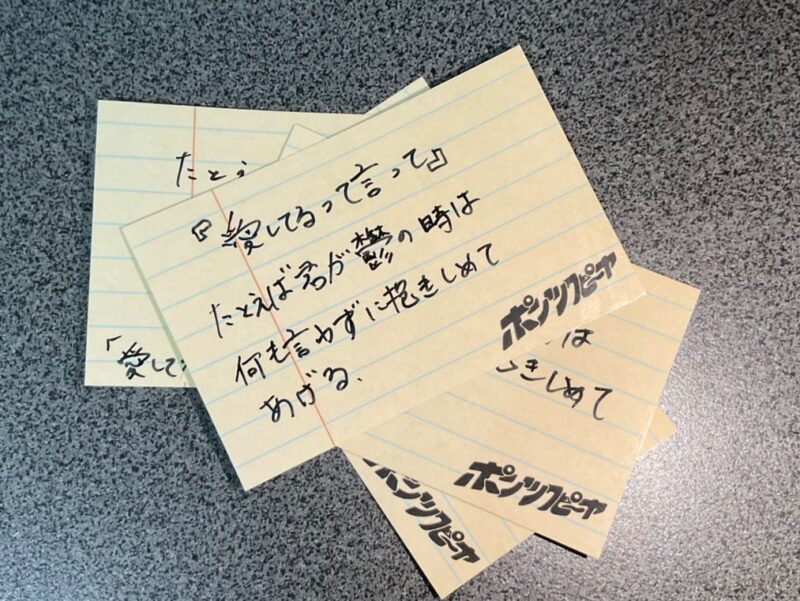 たと
『愛してるって言って』
たとえば君が鬱の時は
何も言わずに抱きしめて
あげる、
ポンツクピーヤ
「愛して
は
きしめて
ポンツクピーヤ
ポンツクピーヤ